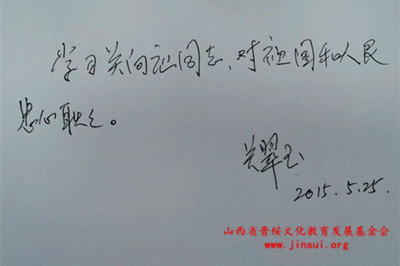 学习关向应同志、对祖国和人民
忠心耿耿。
关翠玉
2015.5.25.
山西省晋绥文化教育发展基金会
www.jinsui.org